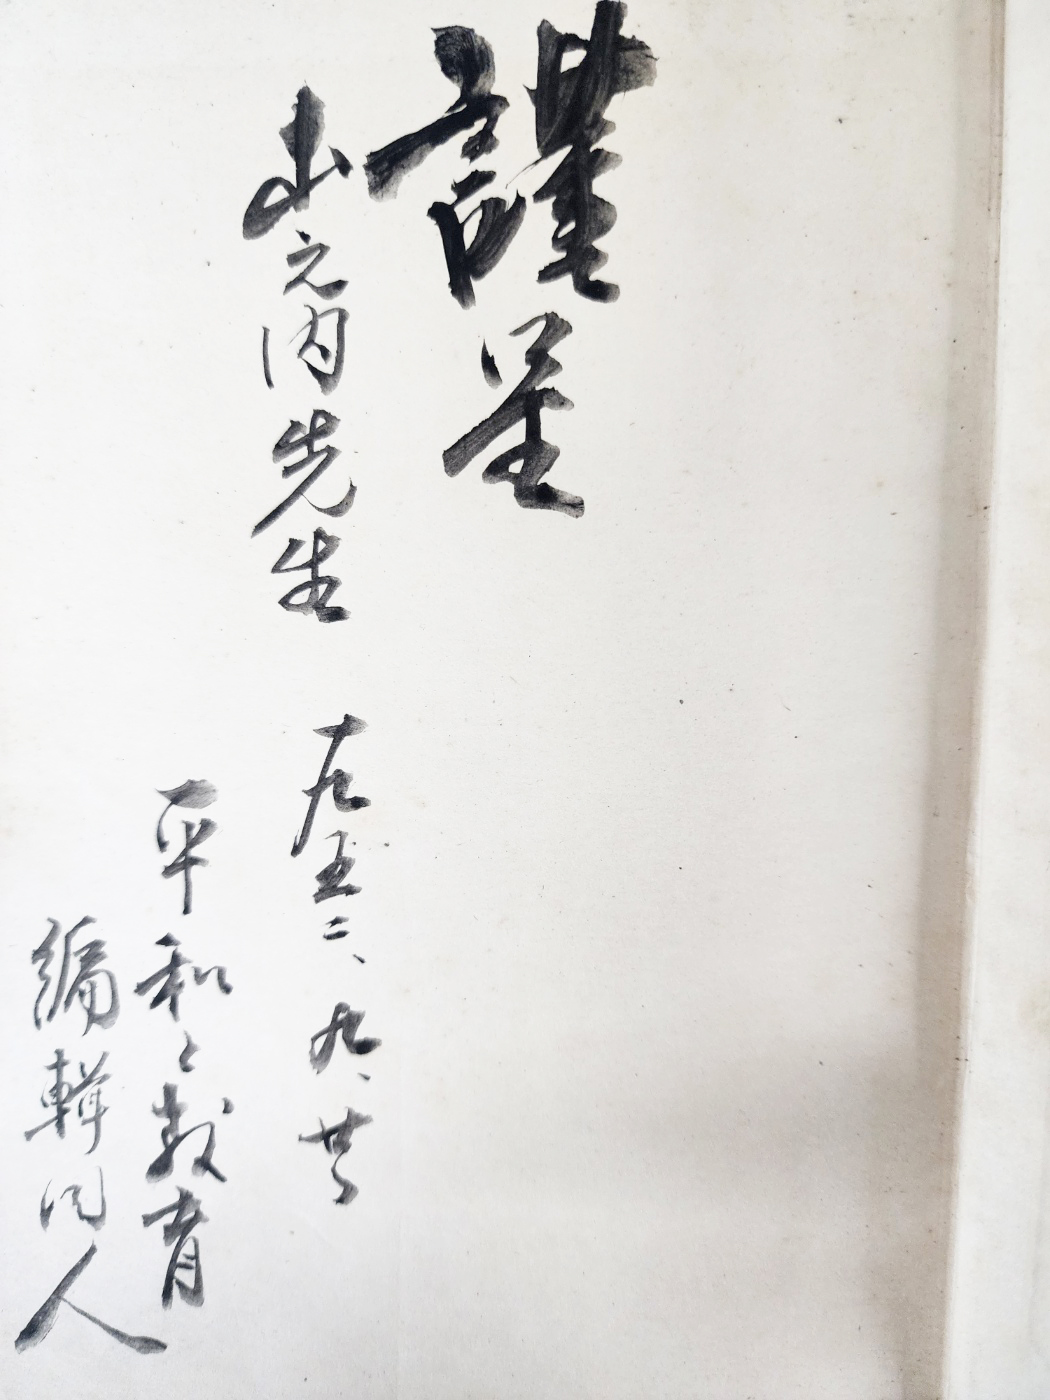 謹呈
山之内先生
一九五二、九、廿
平和と教育
編輯同人